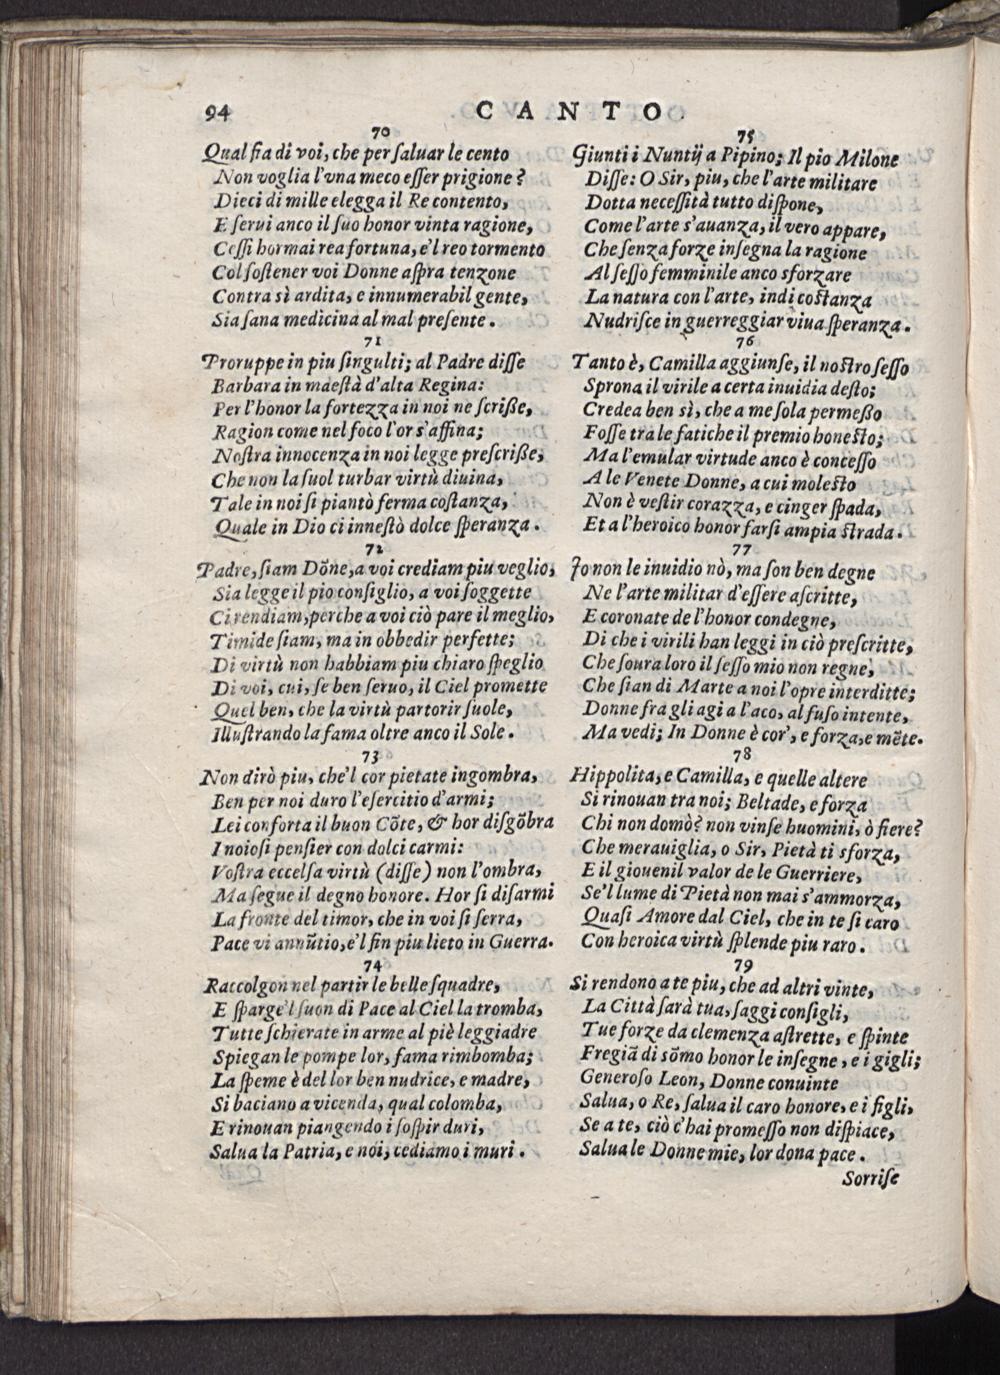 94
CANTO
70
Qual fia di voi, che per ſaluar le cento
Non voglia l'vna meco eſſer prigione?
Dieci di mille elegga il Re contento,
E ſerui anco il ſuo honor vinta ragione,
Ceſſi hormai rea fortuna, e'l reo tormento
Col ſoſtener voi Donne aſpra tenzone
Contra sì ardita, e innumerabil gente,
Sia ſana medicina al mal preſente.
71
Proruppe in piu ſingulti; al Padre diſſe
Barbara in maeſtà d'alta Regina:
Per l'honor la fortezza in noi ne ſcriße,
Ragion come nel foco l'or s'affina;
Noſtra innocenza in noi legge preſcriße,
Che non la ſuol turbar virtù diuina,
Tale in noi ſi piantò ferma coſtanza,
Quale in Dio ci inneſtò dolce ſperanza.
72
Padre, ſiam Dõne, a voi crediam piu veglio,
Sia legge il pio conſiglio, a voi ſoggette
Ci rendiam, perche a voi ciò pare il meglio,
Timide ſiam, ma in obbedir perfette;
Di virtù non habbiam piu chiaro ſpeglio
Di voi, cui, ſe ben ſeruo, il Ciel promette
Quel ben, che la virtù partorir ſuole,
Illuſtrando la fama oltre anco il Sole.
73
Non dirò piu, che'l cor pietate ingombra,
Ben per noi duro l'eſercitio d'armi;
Lei conforta il buon Cõte, & hor diſgõbra
I noioſi penſier con dolci carmi:
Voſtra eccelſa virtù (diſſe) non l'ombra,
Ma ſegue il degno honore. Hor ſi diſarmi
La fronte del timor, che in voi ſi ſerra,
Pace vi annũtio, e'l fin piu lieto in Guerra.
74
Raccolgon nel partir le belle ſquadre,
E ſparge'l ſuon di Pace al Ciel la tromba,
Tutte ſchierate in arme al piè leggiadre
Spiegan le pompe lor, fama rimbomba;
La ſpeme è del lor ben nudrice, e madre,
Si baciano a vicenda, qual colomba,
E rinouan piangendo i ſoſpir duri,
Salua la Patria, e noi, cediamo i muri.
75
Giunti i Nuntij a Pipino; Il pio Milone
Diſſe: O Sir, piu, che l'arte militare
Dotta neceſſità tutto diſpone,
Come l'arte s'auanza, il vero appare,
Che ſenza forze inſegna la ragione
Al ſeſſo femminile anco sforzare
La natura con l'arte, indi coſtanza
Nudriſce in guerreggiar viua ſperanza.
76
Tanto è, Camilla aggiunſe, il noſtro ſeſſo
Sprona il virile a certa inuidia deſto;
Credea ben sì, che a me ſola permeßo
Foſſe tra le fatiche il premio honeſto;
Ma l'emular virtude anco è conceſſo
A le Venete Donne, a cui moleſto
Non è veſtir corazza, e cinger ſpada,
Et a l'heroico honor farſi ampia ſtrada.
77
Io non le inuidio nò, ma ſon ben degne
Ne l'arte militar d'eſſere aſcritte,
E coronate de l'honor condegne,
Di che i virili han leggi in ciò preſcritte,
Che ſoura loro il ſeſſo mio non regne,
Che ſian di Marte a noi l'opre interditte;
Donne fra gli agi a l'aco, al fuſo intente,
Ma vedi; In Donne è cor', e forza, e mẽte.
78
Hippolita, e Camilla, e quelle altere
Si rinouan tra noi; Beltade, e forza
Chi non domò? non vinſe huomini, ò fiere?
Che merauiglia, o Sir, Pietà ti sforza,
E il giouenil valor de le Guerriere,
Se'l lume di Pietà non mai s'ammorza,
Quaſi Amore dal Ciel, che in te ſi caro
Con heroica virtù ſplende piu raro.
79
Si rendono a te piu, che ad altri vinte,
La Città ſarà tua, ſaggi conſigli,
Tue forze da clemenza aſtrette, e ſpinte
Fregiã di sõmo honor le inſegne, e i gigli;
Generoſo Leon, Donne conuinte
Salua, o Re, ſalua il caro honore, e i figli,
Se a te, ciò c'hai promeſſo non diſpiace,
Salua le Donne mie, lor dona pace.
Sorriſe